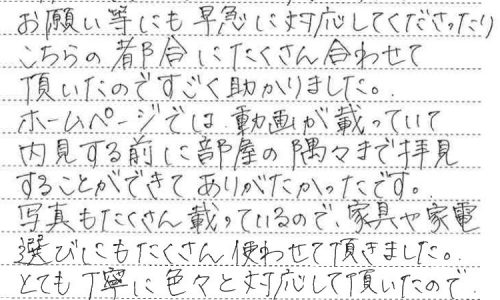 お願い等にも早急に対応してくださったり
こちらの都合にたくさん合わせて
頂いたのですごく助かりました。
ホームページでは動画が載っていて
内見する前に部屋の隅々まで拝見
することができてありがたかったです。
写真もたくさん載っているので、家具や家電
選びにもたくさん使わせて頂きました。
とても丁寧に色々と対応して頂いたので